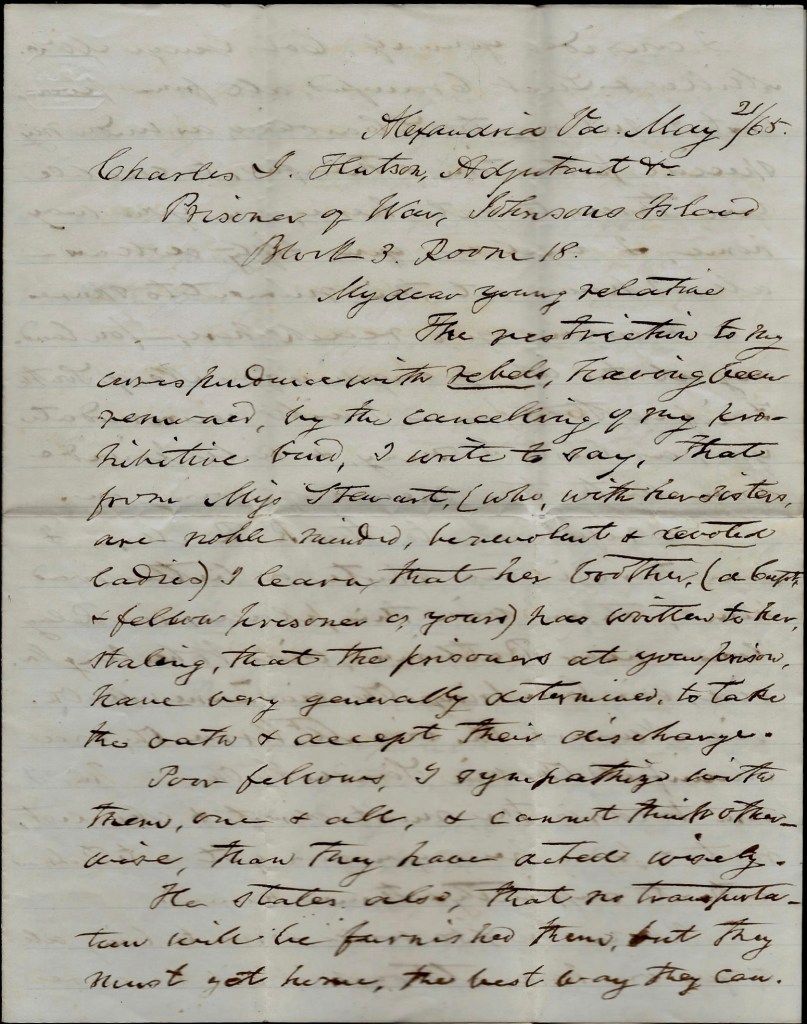 Alexandria Va. May 21/65.
Charles J. Hutson, Adjutant &c
Prisoner of War, Johnsons Island
Block 3. Room 18.
My dear young relative
The restriction to my
correspondence with rebels, having been
removed, by the cancelling of my pro-
hibitive bond, I write to say, that
from Miss Stewart, (who, with her sisters,
are noble minded, benevolent & devoted
ladies) I learn, that her brother, (a Capt.
& fellow prisoner of yours) has written to her,
stating, that the prisoners at your prison,
have very generally determined, to take
the oath & accept their discharge.
Poor fellows, I sympathize with
them, one & all, & cannot think other-
wise, than they have acted wisely.
He states also, that no transporta-
tion will be furnished them, but they
must get home, the best way they can.